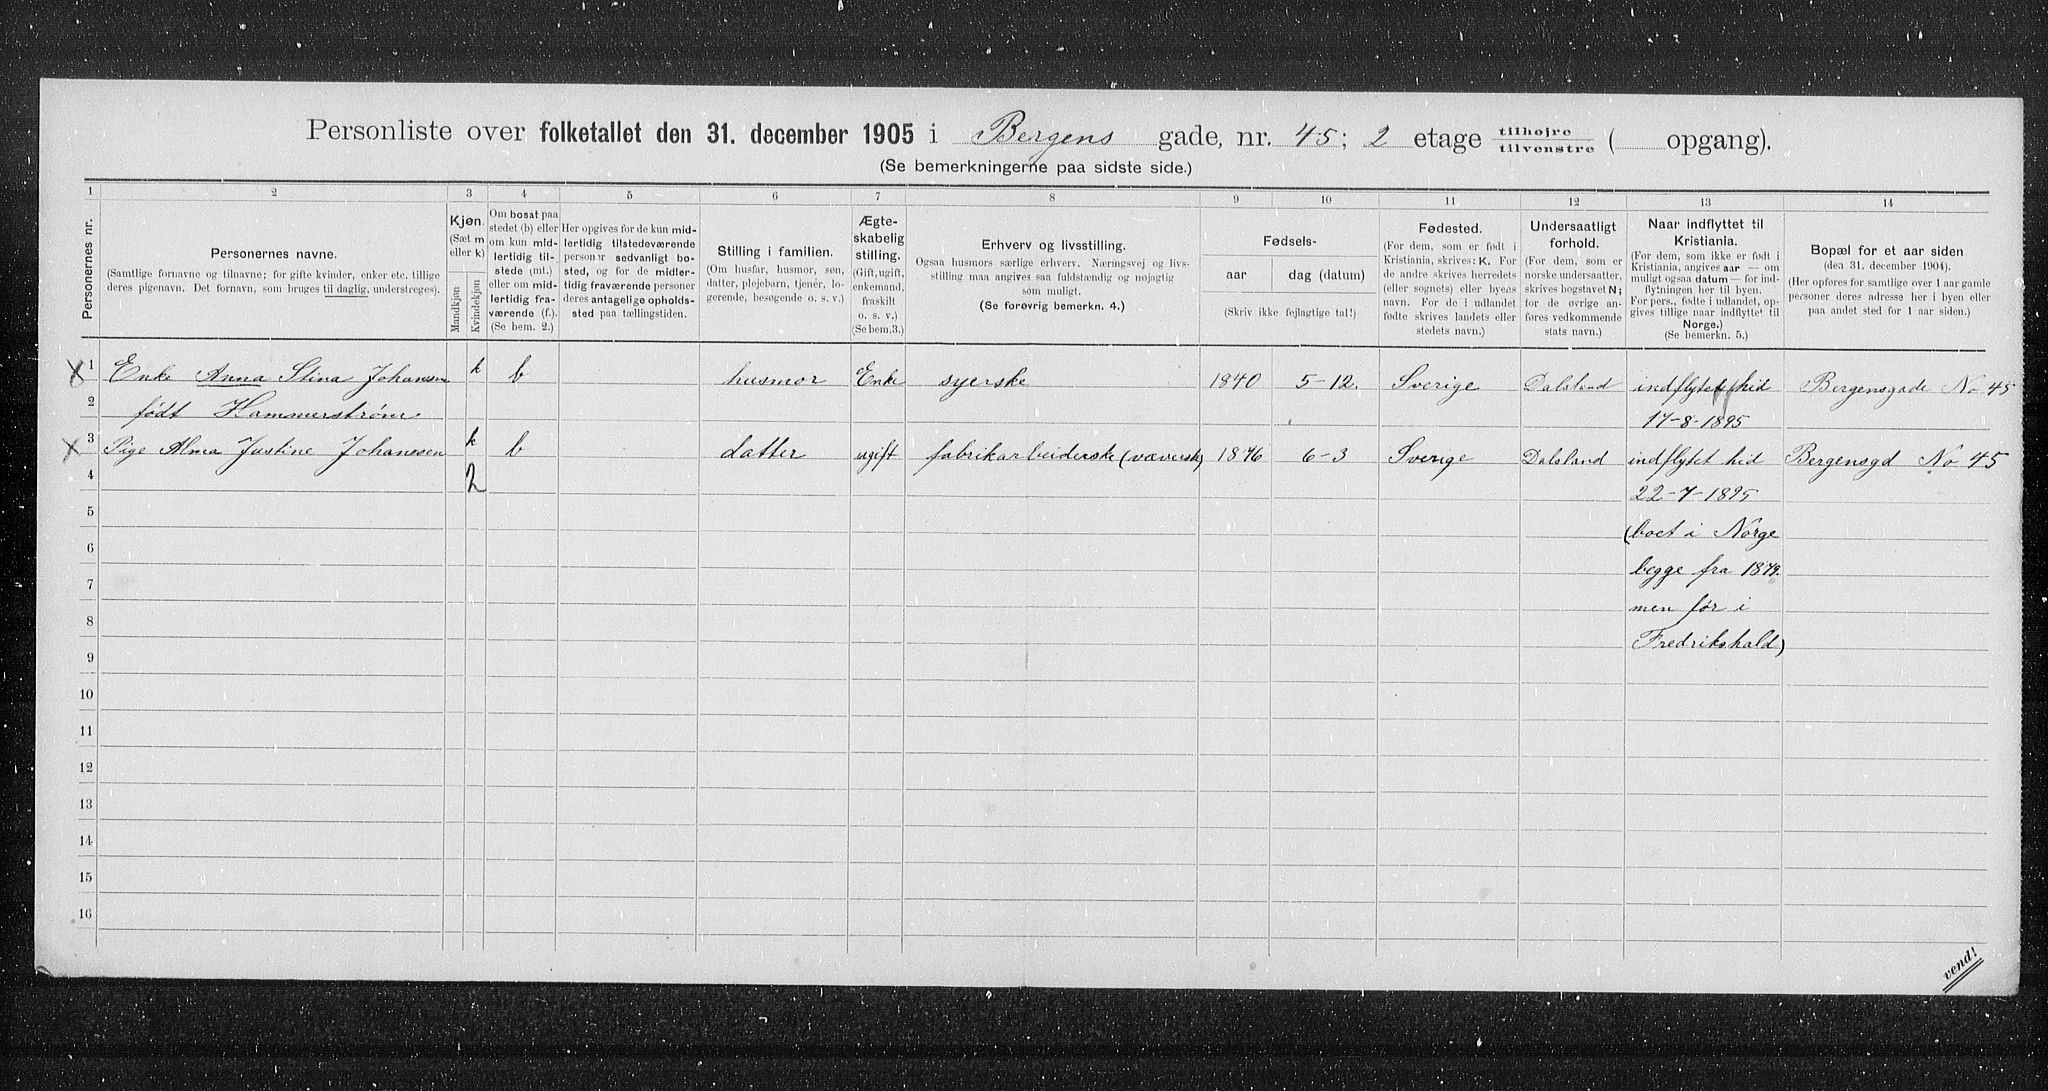 Personliste over folketallet den 31. december 1905 i Bergens gade, nr. 45; 2 etage tilhøjre / tilvenstre ( opgang).
(Se bemerkningerne paa sidste side.)
1 2 3 4 5 6 7 8 9 10 11 12 13 14
Personernes nr.
Personernes navne.
(Samtlige fornavne og tilnavne; for gifte kvinder, enker etc. tillige
deres pigenavn. Det fornavn, som bruges til daglig, understreges).
Kjøn.
(Sæt m
eller k)
Mandkjøn
Kvindekjøn
Om bosat paa
stedet (b) eller
om kun mid-
lertidig til-
stede (mt.)
eller om mid-
lertidig fra-
værende (f.)
(Se bem. 2.)
Her opgives for de kun mid-
lertidig tilstedeværende
personer sedvanlig bo-
sted, og for de midler-
tidig fraværende personer
deres antagelige opholds-
sted paa tællingstiden.
Stilling i familien.
(Om husfar, husmor, søn,
datter, plejebarn, tjener, lo-
gerende, besøgende o. s. v.)
Ægte-
skabelig
stilling.
(Gift, ugift,
enkemand,
fraskilt
o. s. v.)
(Se bem.3.)
Erhverv og livsstilling.
Ogsaa husmors særlige erhverv. Næringsvej og livs-
stilling maa angives saa fuldstændig og nøjagtig
som muligt.
(Se forøvrig bemerkn. 4.)
Fødsels-
aar dag (datum)
(Skriv ikke fejlagtige tal!)
Fødested.
(For dem, som er født i
Kristiania, skrives: K. For
de andre skrives herredets
(eller sognets) eller byens
navn. For de i udlandet
fødte skrives landets eller
stedets navn.)
Undersaatligt
forhold.
(For dem, som er
norske undersaatter,
skrives bogstavet N;
for de øvrige an-
føres vedkommende
stats navn.)
Naar indflyttet til
Kristiania.
(For dem, som ikke er født i
Kristiania, angives aar — om
muligt ogsaa datum — for ind-
flytningen her til byen.
For pers., fødte i udlandet, op-
gives tillige naar indflyttet til
Norge.)
(Se bemerkn. 5.)
Bopæl for et aar siden
(den 31. december 1904.)
(Her opføres for samtlige over 1 aar gamle
personer deres adresse her i byen eller
paa andet sted for 1 aar siden.)
1 Enke Anna Stina Johansen k b husmor Enke syerske 1840 5-12. Sverige Dalsland indflytet hid Bergensgade No 45
2 født Hammerstrøm 17-8-1895
3 Pige Alma Justine Johansen k b datter ugift fabrikarbeiderske (væversk) 1876 6-3 Sverige Dalsland indflytet hid Bergensgd No 45
4 2 22-7-1895
5 (boet i Norge
6 begge fra 1879.
7 men før i
8 Fredrikshald)
9
10
11
12
13
14
15
16
vend!